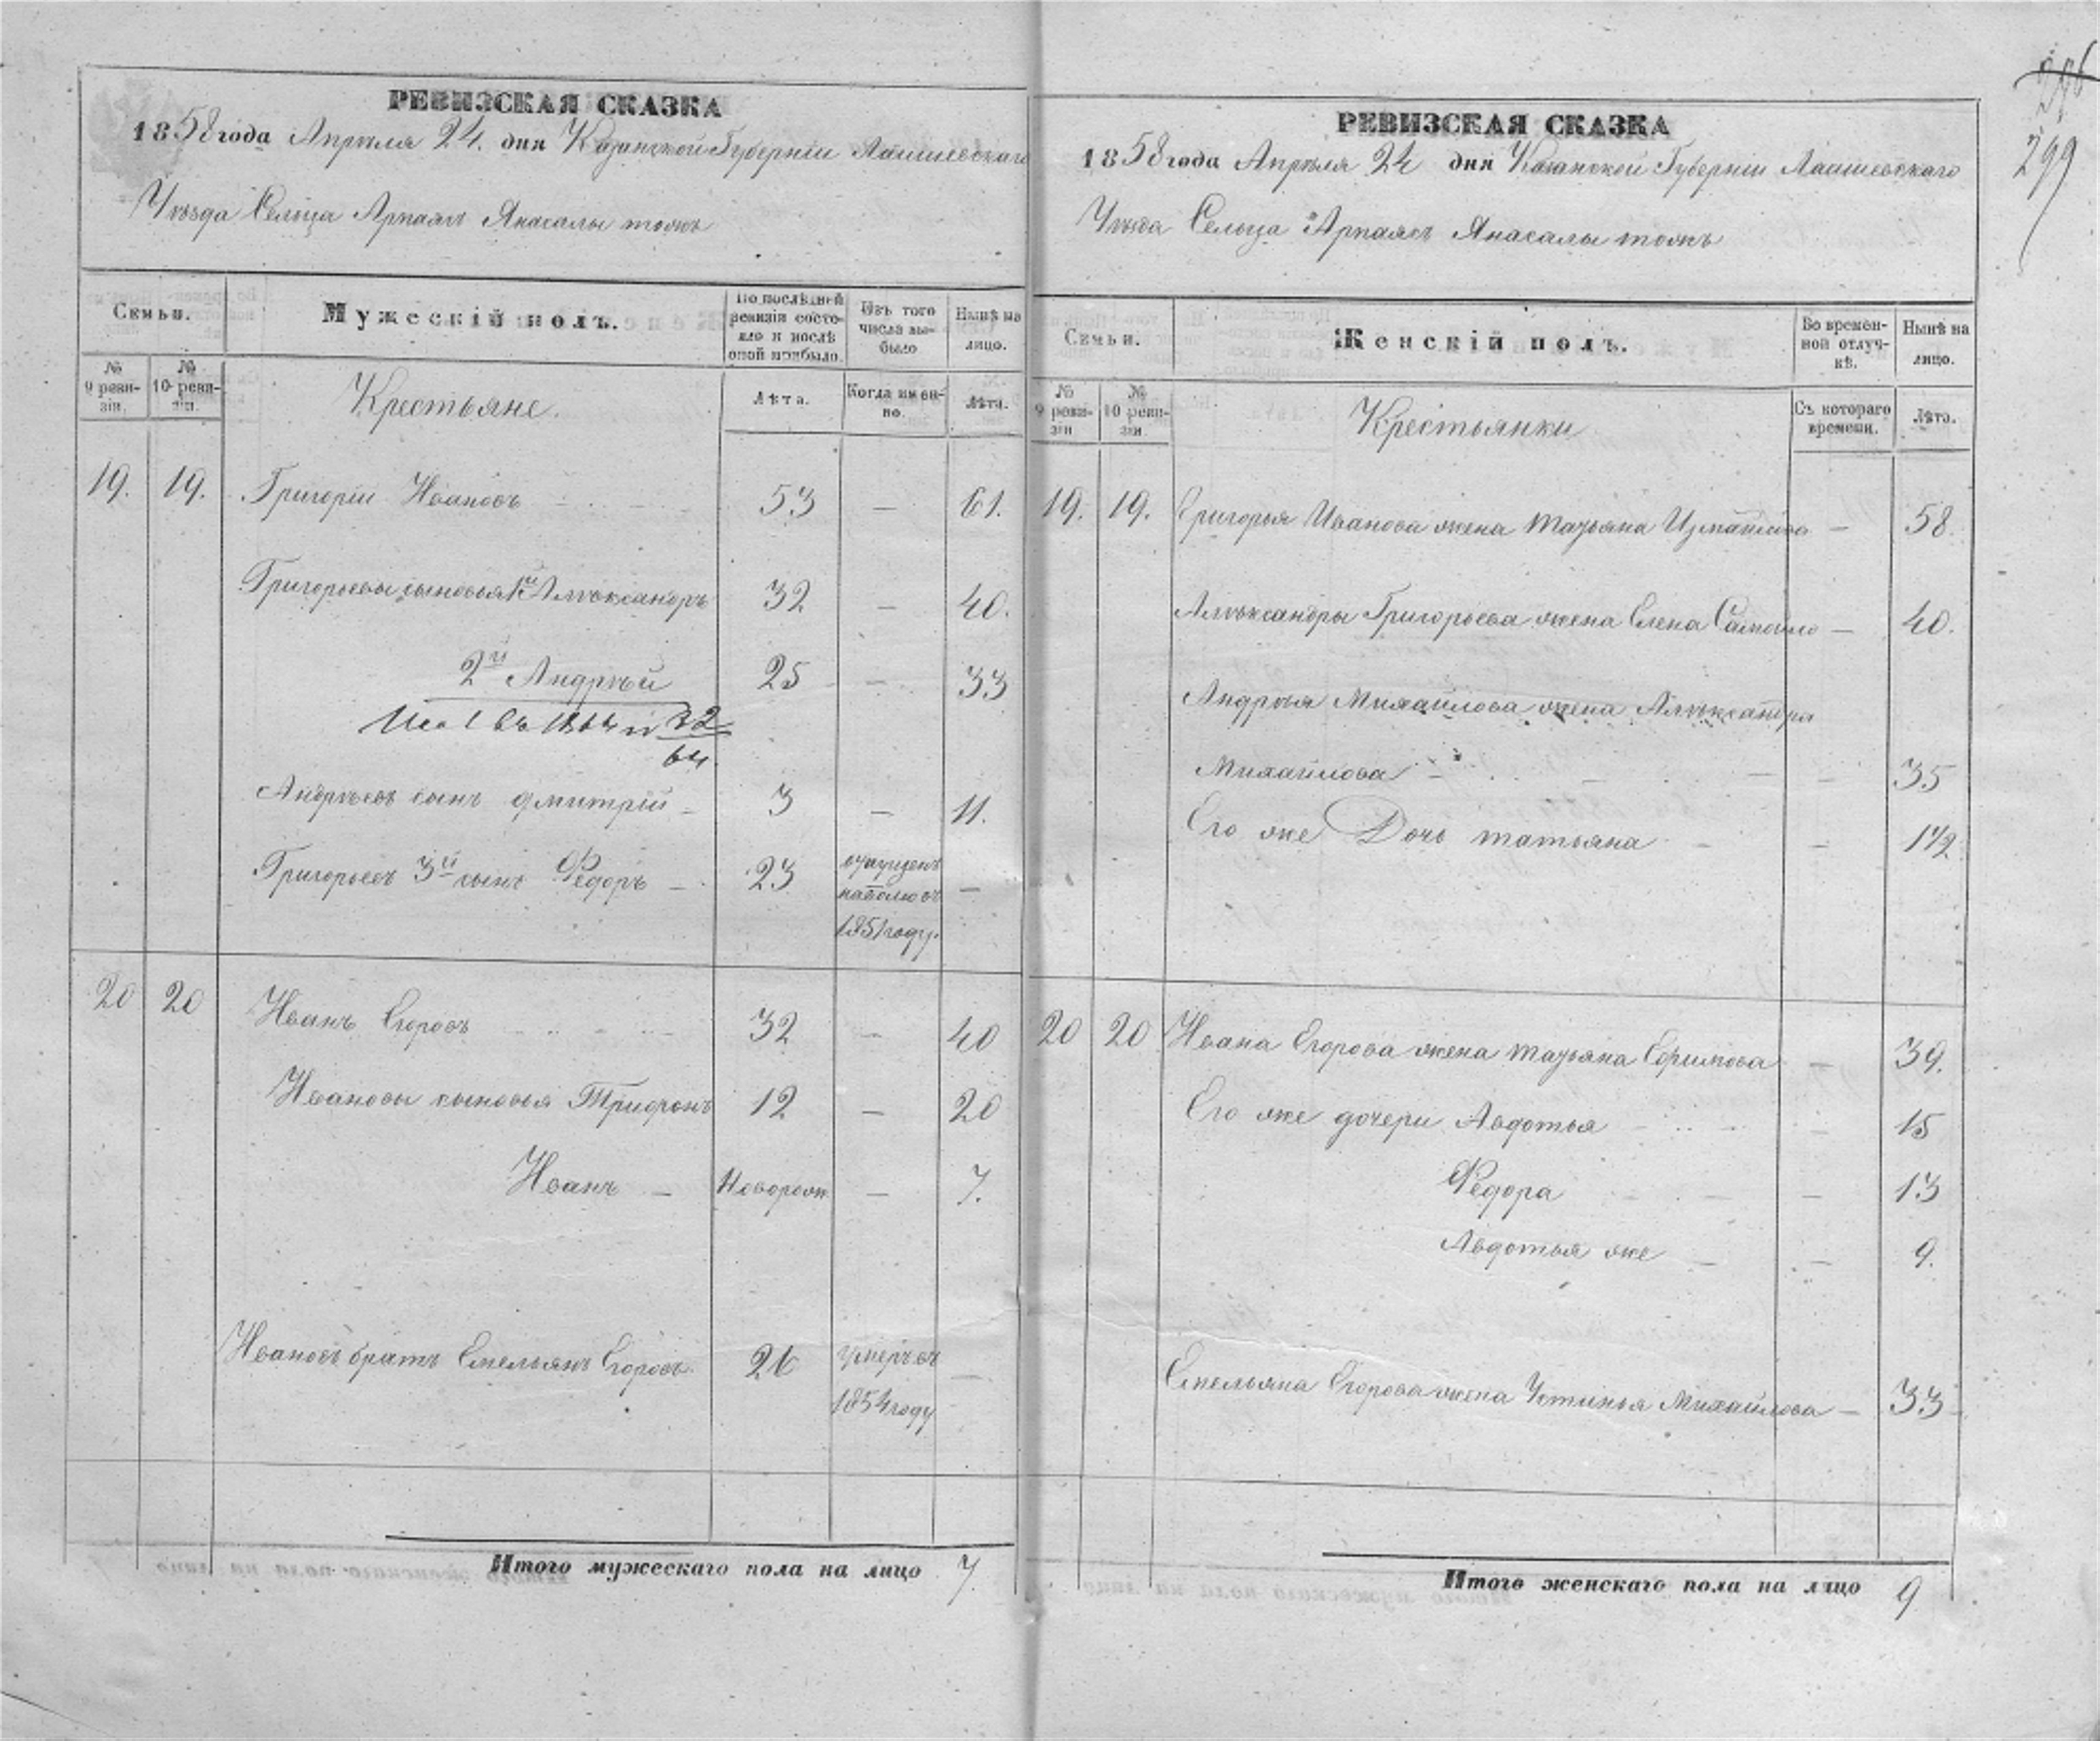 296
299
РЕВИЗСКАЯ СКАЗКА
1858 года Апрѣля 24. дня Казанской Губерніи Лаишевскаго
Уѣзда Сельца Арпаязъ Янасалы тожъ
Семьи.
Мужескій полъ.
По послѣдней ревизіи состояло и послѣ оной прибыло.
Изъ того числа выбыло
Нынѣ на лицо.
№ 9 ревизіи.
№ 10 ревизіи.
Крестьяне.
Лѣта.
Когда именно.
Лѣта.
19. 19. Григорій Ивановъ 53 — 61.
Григорьевы сыновья 1й Алѣксандръ 32 — 40.
2й Андрѣй 25 — 33
64
Андрѣевъ сынъ Дмитрій 3 — 11.
Григорьевъ 3й сынъ Ѳедоръ — 23 —
1851 году.
20 20 Иванъ Егоровъ 32 — 40
Ивановы сыновья Трифонъ 12 — 20
Иванъ — Новорож. — 7.
Ивановъ братъ Емельянъ Егоровъ. 26 умеръ въ —
1854 году
Итого мужескаго пола на лицо 7.
РЕВИЗСКАЯ СКАЗКА
1858 года Апрѣля 24 дня Казанской Губерніи Лаишевскаго
Уѣзда Сельца Арпаязъ Янасалы тожъ
Семьи.
Женскій полъ.
Во временной отлучкѣ.
Нынѣ на лицо.
№ 9 ревизіи
№ 10 ревизіи
Крестьянки
Съ котораго времени.
Лѣта.
19. 19. Григорья Иванова жена Татьяна Измайлова — 58.
Алѣксандры Григорьева жена Елена Самойло — 40.
Андрѣя Михайлова жена Алѣксандра
Михайлова — 35
Его же Дочь татьяна — 1 1/2
20 20 Ивана Егорова жена Татьяна Ефимова — 39.
Его же дочери Авдотья — 15
Ѳедора — 13
Авдотья же — 9.
Емельяна Егорова жена Устинья Михайлова — 33
Итого женскаго пола на лицо 9